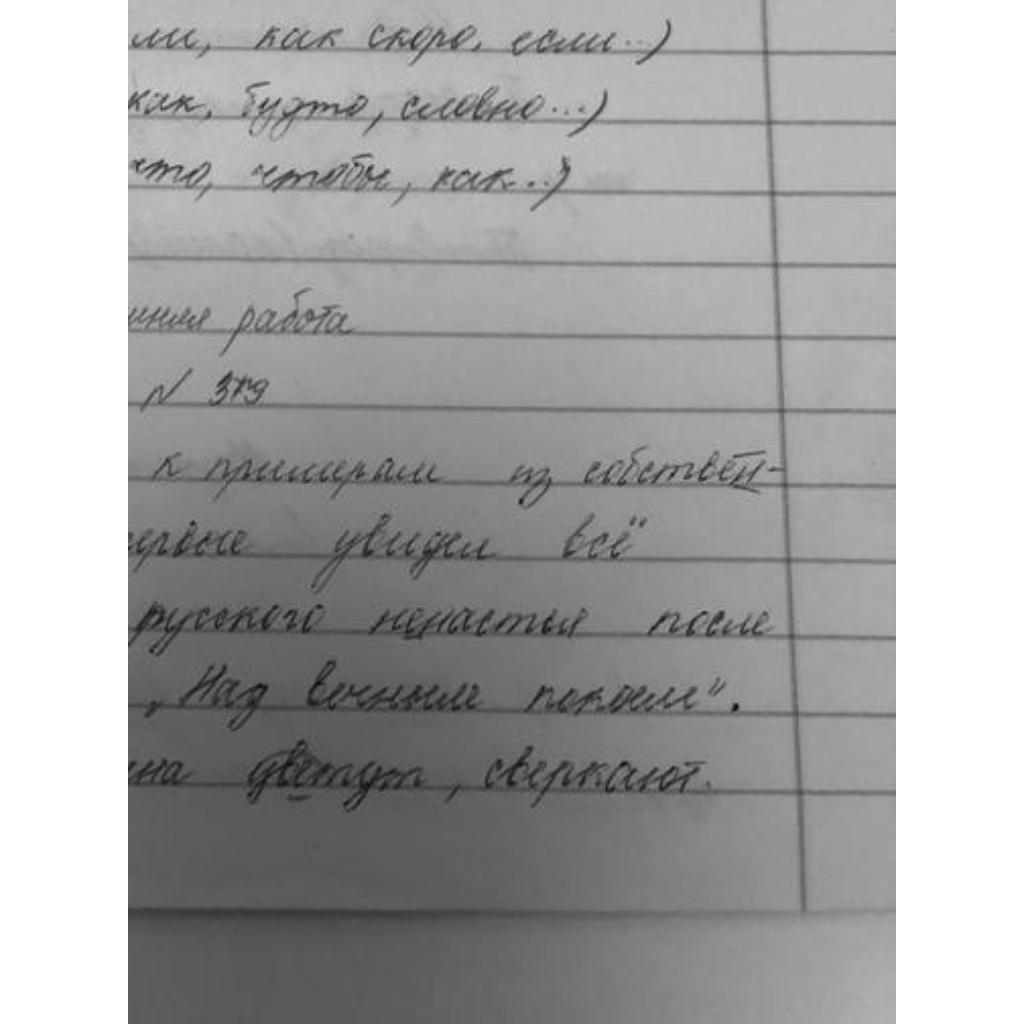 ли, как скоро, если...)
как, будто, словно...)
что, чтобы, как...)
шняя работа
N 379
к примерам из собствен-
ервые увидел всё
русского ненастья после
„Над вечным покоем".
на цветут, сверкают.